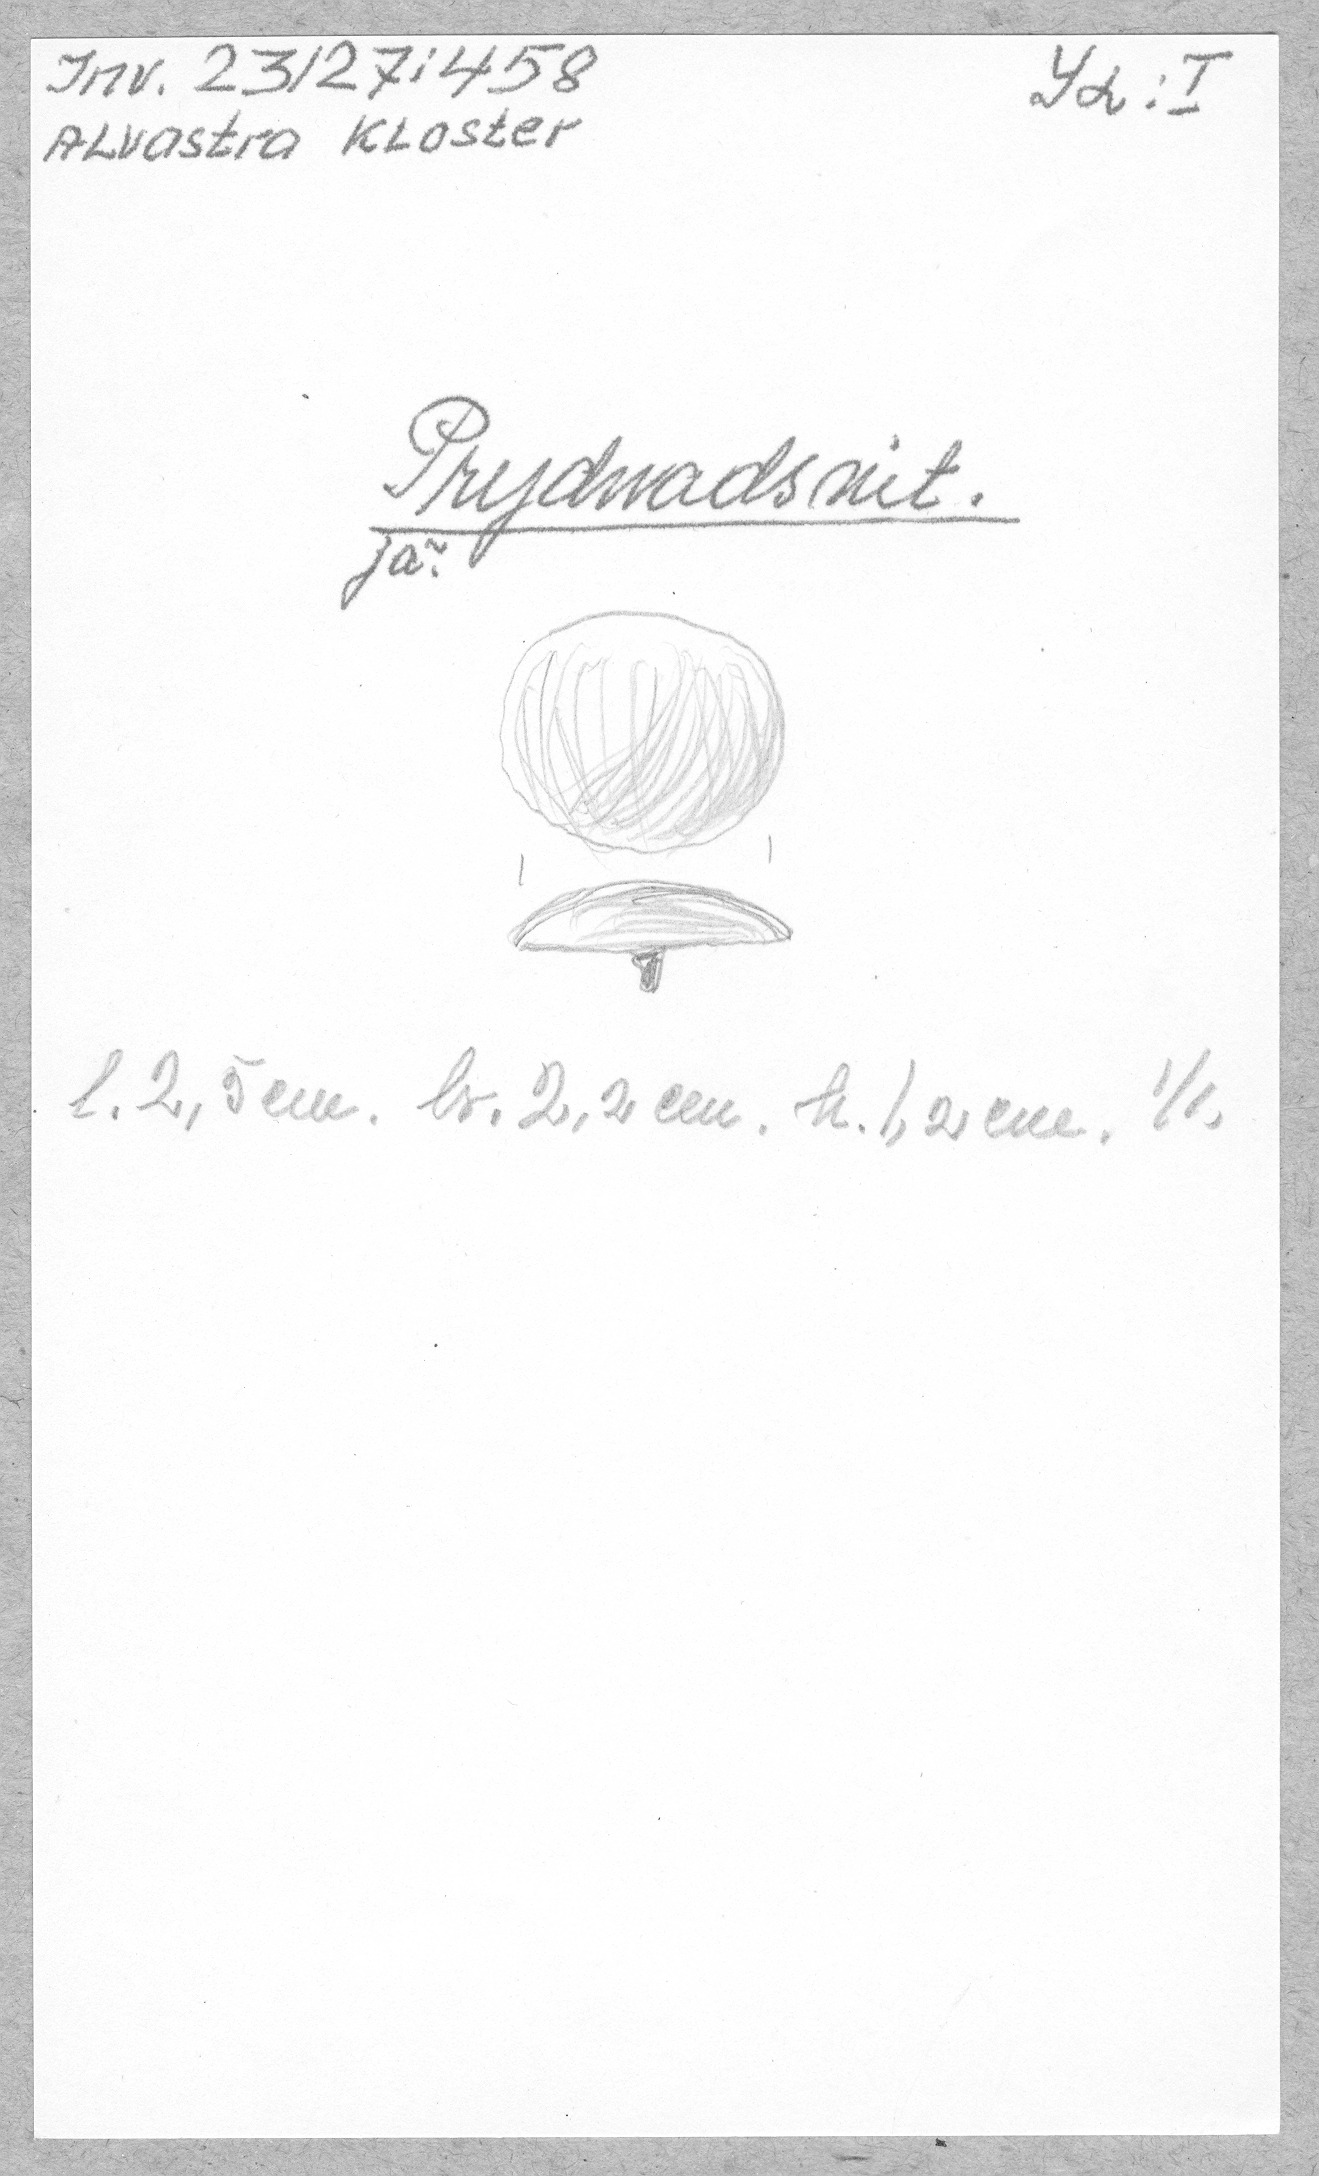 Inv. 23127:458
Yd: I
ALvastra KLoster
Prydnadsnit.
jä:
l. 2,5 cm. br. 2,2 cm. h. 1,2 cm. 1/1.